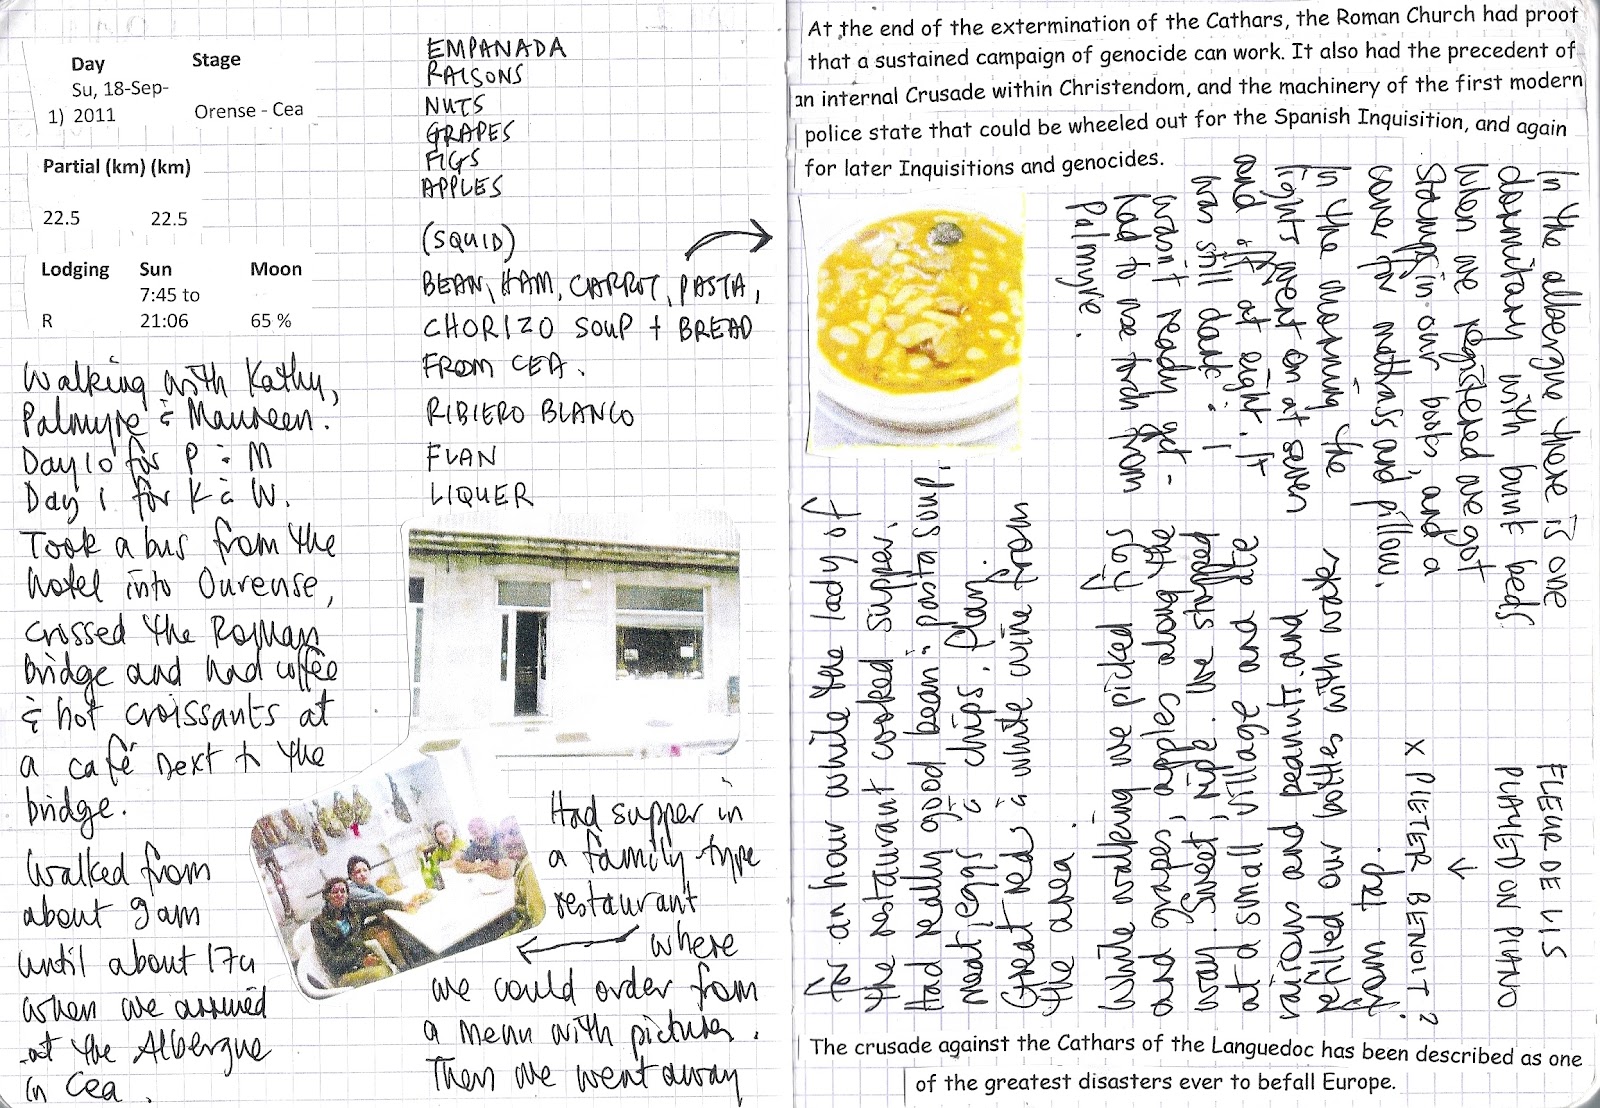 Day Stage
Su, 18-Sep-
1) 2011 Orense - Cea
Partial (km) (km)
22.5 22.5
Lodging Sun Moon
7:45 to
R 21:06 65 %
Walking with Kathy,
Palmyre & Maureen.
Day 10 for P & M
Day 1 for K & W.
Took a bus from the
hotel into Ourense,
crossed the Roman
bridge and had coffee
& hot croissants at
a café next to the
bridge.
Walked from
about 9am
until about 17u
when we arrived
at the Albergue
in Cea.
EMPANADA
RAISONS
NUTS
GRAPES
FIGS
APPLES
(SQUID)
BEAN, HAM, CARROT, PASTA,
CHORIZO SOUP + BREAD
FROM CEA.
RIBIERO BLANCO
FLAN
LIQUER
Had supper in
a family-type
restaurant
where
we could order from
a menu with pictures.
Then we went away
At the end of the extermination of the Cathars, the Roman Church had proof
that a sustained campaign of genocide can work. It also had the precedent of
an internal Crusade within Christendom, and the machinery of the first modern
police state that could be wheeled out for the Spanish Inquisition, and again
for later Inquisitions and genocides.
for an hour while the lady of
the restaurant cooked supper.
Had really good bean & pasta soup,
meat, eggs & chips. Flan.
Great red & white wine from
the area.
While walking we picked figs
and grapes, apples along the
way. Sweet, ripe. We stopped
at a small village and ate
raisins and peanuts and
refilled our bottles with water
In the albergue there is one
dormitory with bunk beds.
When we registered we got
stamps in our books, and a
cover for mattrass and pillow.
In the morning the
lights went on at seven
and off at eight. It
was still dark & I
wasn't ready yet -
had to use torch from
Palmyre.
FLEUR DE LIS
PLAYED ON PIANO
x PIETER BENOIT?
The crusade against the Cathars of the Languedoc has been described as one
of the greatest disasters ever to befall Europe.